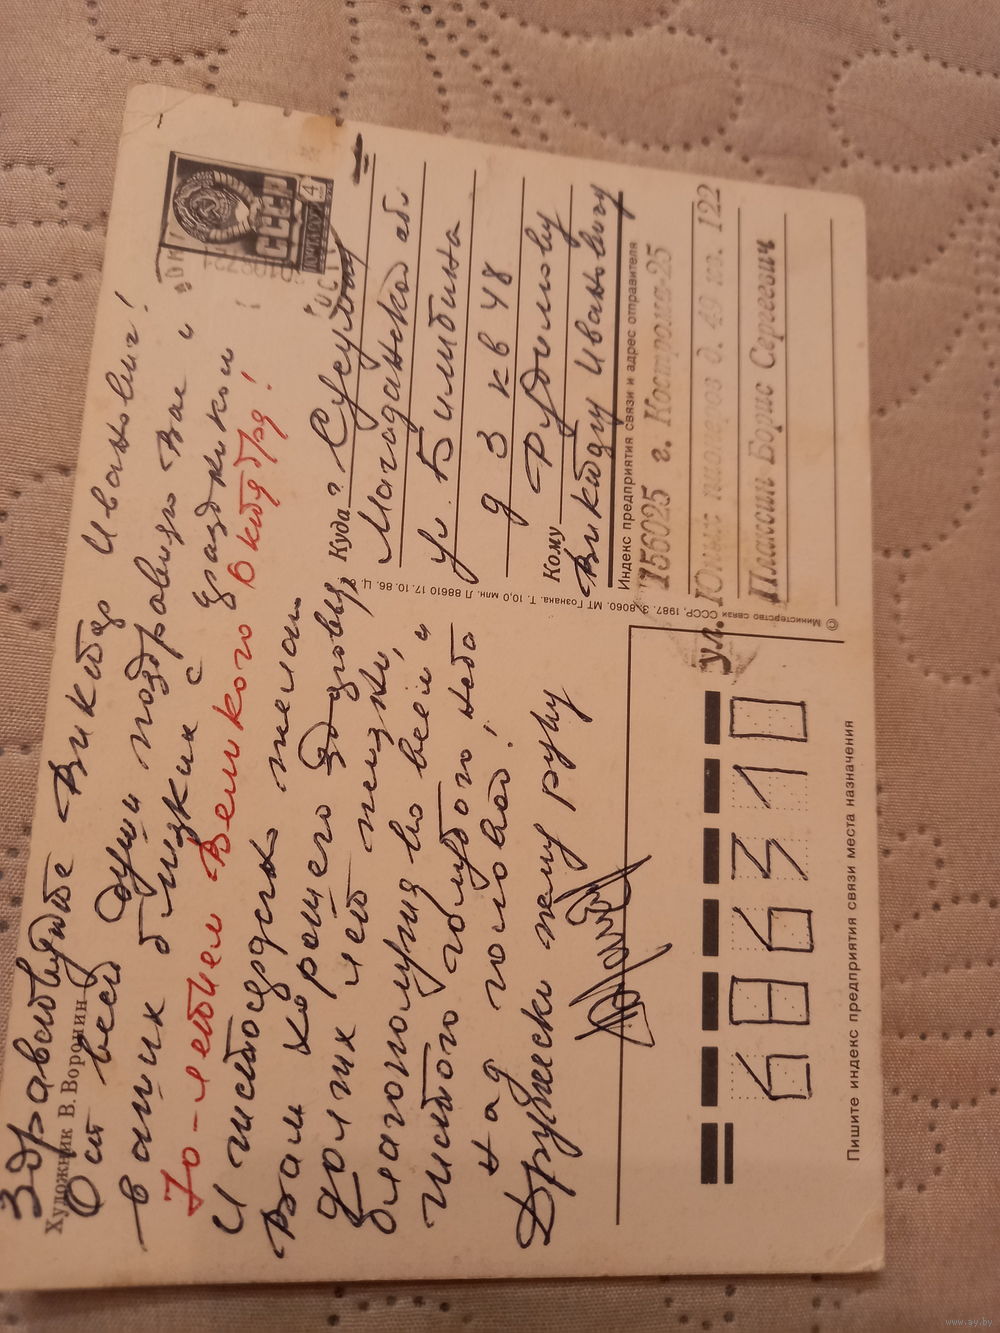 Художник В. Воронин
Здравствуйте Виктор Иванович!
От всей души поздравляю Вас и
ваших близких с праздником
70-летием Великого Октября!
И чистосердечно желаю
Вам хорошего здоровья,
долгих лет жизни,
благополучия во всем и
чистого голубого неба
над головой!
Дружески жму руку
СССР
ПОЧТА 1987
4
Куда г. Сусуман
Магаданской обл.
ул. Билибина
д 3 кв 48
Кому Рудилову
Виктору Ивановичу
Индекс предприятия связи и адрес отправителя
156025 г. Кострома-25
ул. Юных пионеров д. 49 кв. 122
Плаксин Борис Сергеевич
© Министерство связи СССР, 1987. З. 8060. МТ Гознака. Т. 10,0 млн. Л 88610 17.10.86. Ц.
686310
Пишите индекс предприятия связи места назначения
www.ay.by